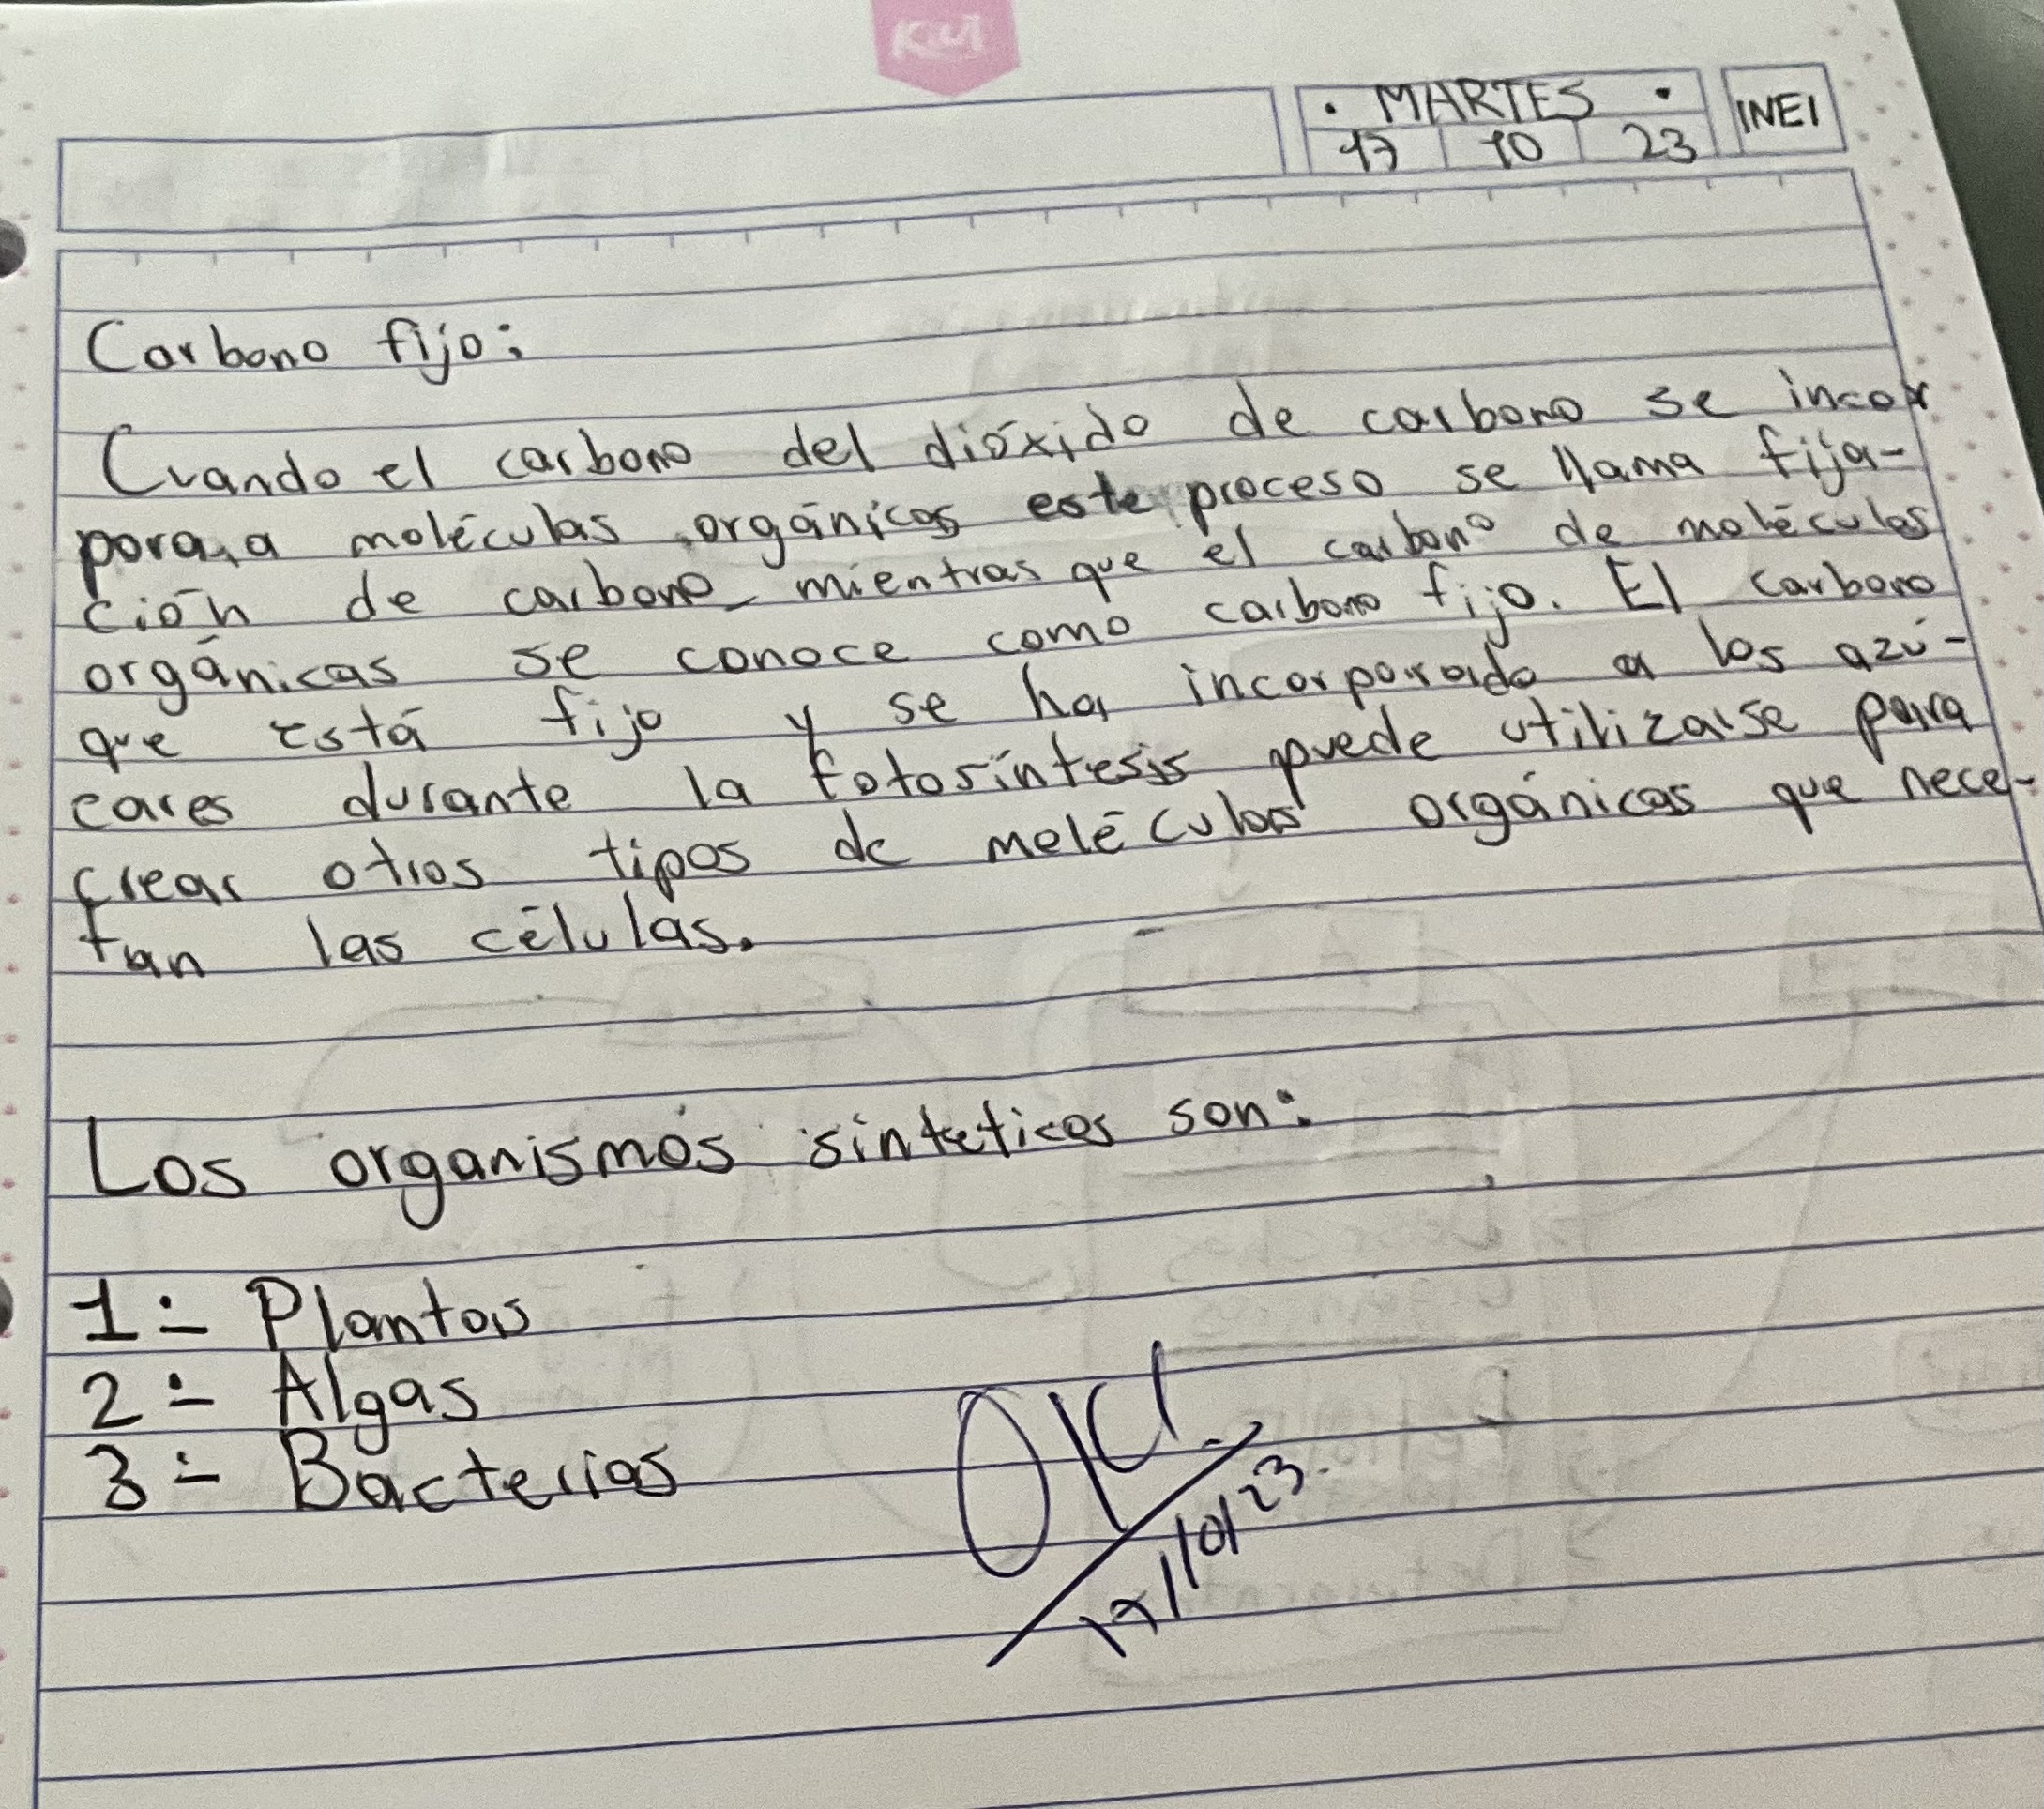 Kiut
· MARTES ·
17 10 23
INEI
Carbono fijo:
Cuando el carbono del dióxido de carbono se incor
pora a moléculas orgánicas este proceso se llama fija-
ción de carbono mientras que el carbono de moléculas
orgánicas se conoce como carbono fijo. El carbono
que está fijo y se ha incorporado a los azú-
cares durante la fotosíntesis puede utilizarse para
crear otros tipos de meléculas orgánicas que nece-
tan las células.
Los organismos sinteticos son:
1.- Plantas
2.- Algas
3.- Bacterias
OK
17/10/23.